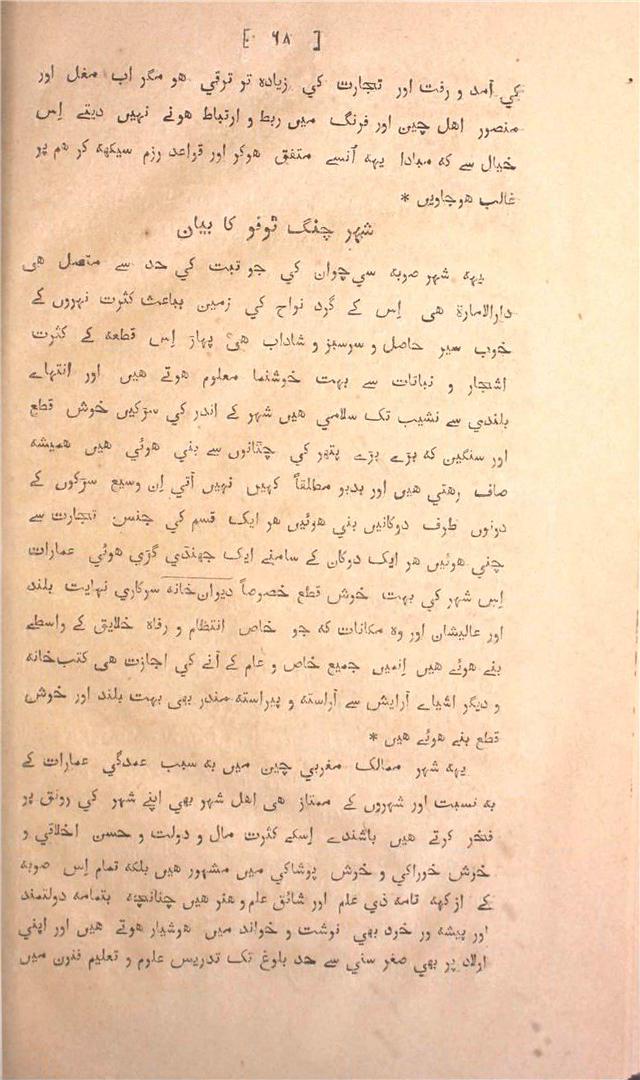 [ ٦٨ ]
كي آمد و رفت اور تجارت كي زياده تو ترقي هو مگر اب مغل اور
منصور اهل چين اور فرنگ ميں ربط و ارتباط هونے نهيں ديتے اِس
خيال سے كه مبادا يهه اُنسے متفق هوكر اور قواعد رزم سيكهه كر هم پر
غالب هوجاويں *
شهر چنگ توفو كا بيان
يهه شهر صوبه سي‌چوان كي جو تبت كي حد سے متصل هى
دارالامارة هى اِس كے گرد نواح كي زمين بباعث كثرت نهروں كے
خوب سير حاصل و سرسبز و شاداب هى پهاڑ اِس قطعه كے كثرت
اشجار و نباتات سے بهت خوشنما معلوم هوتے هيں اور انتهاے
بلندي سے نشيب تك سلامي هيں شهر كے اندر كي سڑكيں خوش قطع
اور سنگين كه بڑے بڑے پتهر كي چٹانوں سے بني هوئي هيں هميشه
صاف رهتي هيں اور بدبو مطلقاً كهيں نهيں آتي اِن وسيع سڑكوں كے
دونوں طرف دوكانيں بني هوئيں هر ايك قسم كي جنس تجارت سے
چني هوئيں هر ايك دوكان كے سامنے ايك جهنڈي گڑي هوئي عمارات
اِس شهر كي بهت خوش قطع خصوصاً ديوان‌خانه سركاري نهايت بلند
اور عاليشان اور وه مكانات كه جو خاص انتظام و رفاه خلايق كے واسطے
بنے هوئے هيں اِنميں جميع خاص و عام كے آنے كي اجازت هى كتب‌خانه
و ديگر اشياے آرايش سے آراسته و پيراسته مندر بهي بهت بلند اور خوش
قطع بنے هوئے هيں *
يهه شهر ممالك مغربي چين ميں به سبب عمدگي عمارات كے
به نسبت اور شهروں كے ممتاز هى اهل شهر بهي اپنے شهر كي رونق پر
فخر كرتے هيں باشندے اِسكے كثرت مال و دولت و حسن اخلاقي و
خوش خوراكي و خوش پوشاكي ميں مشهور هيں بلكه تمام اِس صوبه
كے از كهه تامه ذي علم اور شائق علم و هنر هيں چنانچه بتمامه دولتمند
اور پيشه ور خرد بهي نوشت و خواند ميں هوشيار هوتے هيں اور اپني
اولاد پر بهي صغر سني سے حد بلوغ تك تدريس علوم و تعليم فنون ميں